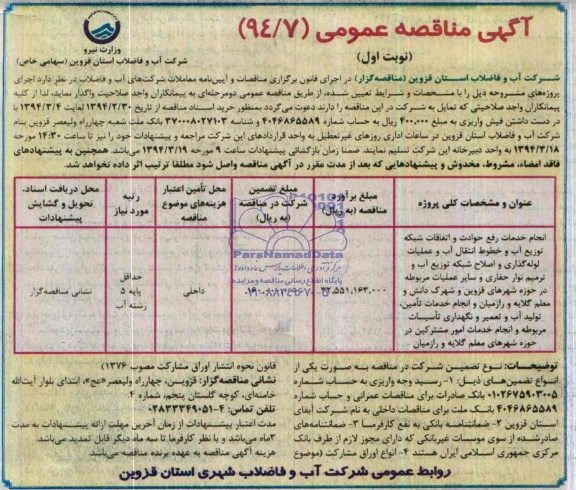 آگهی مناقصه عمومی (۹۴/۷)
(نوبت اول)
وزارت نیرو
شرکت آب و فاضلاب استان قزوین (سهامی خاص)
شرکت آب و فاضلاب استان قزوین (مناقصه‌گزار) در اجرای قانون برگزاری مناقصات و آیین‌نامه معاملات شرکت‌های آب و فاضلاب در نظر دارد اجرای
پروژه‌های مشروحه ذیل را با مشخصات و شرایط تعیین شده، از طریق مناقصه عمومی دومرحله‌ای به پیمانکاران واجد صلاحیت واگذار نماید، لذا از کلیه
پیمانکاران واجد صلاحیتی که تمایل به شرکت در این مناقصه را دارند دعوت می‌گردد بمنظور خرید اسناد مناقصه از تاریخ ۱۳۹۴/۲/۳۰ لغایت ۱۳۹۴/۳/۴ با
در دست داشتن فیش واریزی به مبلغ ۴۰۰,۰۰۰ ریال به حساب شماره ۴۰۴۶۸۶۵۵۸۹ و شناسه ۳۷۰۰۰۸۰۲۷۱۰۳ بانک ملت شعبه چهارراه ولیعصر قزوین بنام
شرکت آب و فاضلاب استان قزوین در ساعات اداری روزهای غیرتعطیل به واحد قراردادهای این شرکت مراجعه و پیشنهادات خود را نیز تا ساعت ۱۴:۳۰ مورخ
۱۳۹۴/۳/۱۸ به واحد دبیرخانه این شرکت تسلیم نمایند. ضمنا زمان بازگشائی پیشنهادات ساعت ۹ مورخه ۱۳۹۴/۳/۱۹ می‌باشد. همچنین به پیشنهادهای
فاقد امضاء، مشروط، مخدوش و پیشنهادهایی که بعد از مدت مقرر در آگهی مناقصه واصل شود مطلقا ترتیب اثر داده نخواهد شد.
عنوان و مشخصات کلی پروژه
مبلغ برآورد مناقصه (به ریال)
مبلغ تضمین شرکت در مناقصه (به ریال)
محل تأمین اعتبار هزینه‌های موضوع مناقصه
رتبه مورد نیاز
محل دریافت اسناد، تحویل و گشایش پیشنهادات
انجام خدمات رفع حوادث و اتفاقات شبکه
توزیع آب و خطوط انتقال آب و عملیات
لوله‌گذاری و اصلاح شبکه توزیع آب و
ترمیم نوار حفاری و سایر عملیات مربوطه
در حوزه شهرهای قزوین و شهرک دانش و
معلم کلایه و رازمیان و انجام خدمات تأمین،
تولید آب و تعمیر و نگهداری تأسیسات
مربوطه و انجام خدمات امور مشترکین در
حوزه شهرهای معلم کلایه و رازمیان
داخلی
حداقل پایه ۵ رشته آب
نشانی مناقصه‌گزار
ParsNamadData
پایگاه اطلاع رسانی مناقصه و مزایده
توضیحات: نوع تضمین شرکت در مناقصه به صورت یکی از
انواع تضمین‌های ذیل: ۱- رسید وجه واریزی به حساب شماره
۰۱۰۲۶۷۵۹۰۳۰۰۵ بانک صادرات برای مناقصات عمرانی و حساب شماره
۴۰۴۶۸۶۵۵۸۹ بانک ملت برای مناقصات داخلی به نام شرکت آبفای
استان قزوین ۲- ضمانتنامه بانکی به نفع کارفرما ۳- ضمانتنامه‌های
صادرشده از سوی موسسات غیربانکی که دارای مجوز لازم از طرف بانک
مرکزی جمهوری اسلامی ایران هستند ۴- انواع اوراق مشارکت (موضوع
قانون نحوه انتشار اوراق مشارکت مصوب ۱۳۷۶)
نشانی مناقصه‌گزار: قزویـن، چهارراه ولیعصر«عج»، ابتدای بلوار آیت‌الله
خامنه‌ای، کوچه گلستان پنجم، شماره ۴.
تلفن تماس: ۴-۰۲۸۳۳۳۴۹۰۵۱
مدت اعتبار پیشنهادات از زمان آخرین مهلت ارائه پیشنهادات به مدت
۳ماه می‌باشد و با نظر کارفرما تا سه ماه دیگر قابل تمدید می‌باشد.
هزینه آگهی مناقصه به عهده برنده مناقصه می‌باشد.
روابط عمومی شرکت آب و فاضلاب شهری استان قزوین